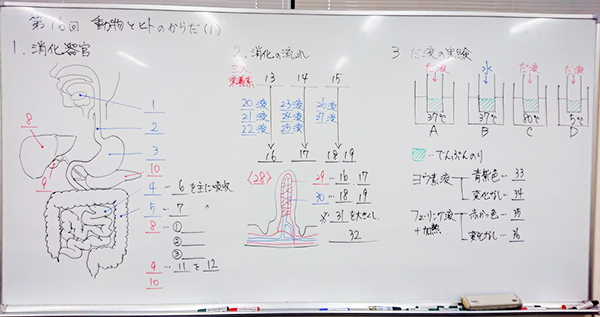 第16回 動物とヒトのからだ(1)
1. 消化器官
8
9
1
2
3
10
4 … 6 を主に吸収
5 … 7 〃
8 … ①
②
③
9 … 11 を 12
10
2. 消化の流れ
三大栄養素 13 14 15
20液 23液 26液
21液 24液 27液
22液 25液
16 17 18 19
〈28〉
29 … 16 17
30 … 18 19
※ 31 を大きくし、
32
3. だ液の実験
だ液 水 だ液 だ液
37℃ 37℃ 80℃ 5℃
A B C D
…でんぷんのり
ヨウ素液 青紫色 … 33
変化なし … 34
フェーリング液 赤かっ色 … 35
+加熱 変化なし … 36